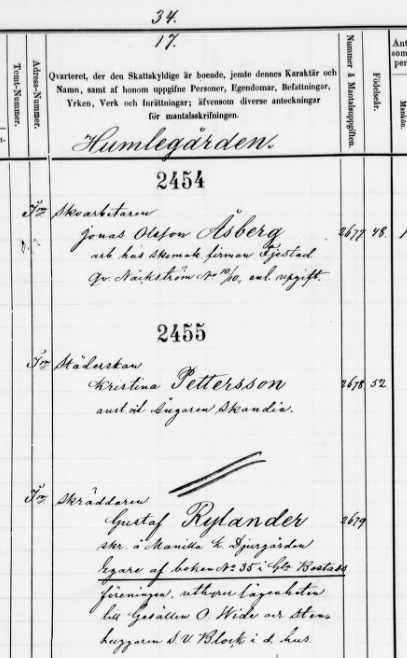 34.
17.
Tomt-Nummer.
Adress-Nummer.
Qvarteret, der den Skattskyldige är boende, jemte dennes Karaktär och
Namn, samt af honom uppgifne Personer, Egendomar, Befattningar,
Yrken, Verk och Inrättningar; äfvensom diverse anteckningar
för mantalsskrifningen.
Nummer å Mantalsuppgiften.
Födelseår.
Ant
som
per
Mankön.
Humlegården.
2454
Skoarbetaren
Jonas Olsson Åsberg 2677 48. 1
arb hos skomak. firman Fjestad
qv. Näckström No 10/10, enl. uppgift.
2455
Städerskan
Kristina Pettersson 2678 52
anst. vid ångaren Skandia.
Skräddaren
Gustaf Rylander 2679
skr. å Manilla k. Djurgården
Egare af boken No 35 i Gla Bostads
föreningen, uthyrer lägenheten
till Gesällen O. Wide och Sten-
huggaren S. V. Block i d. hus.